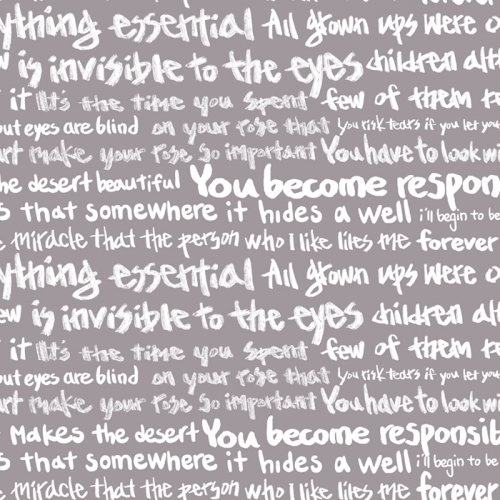 ything essential All grown ups were
is invisible to the eyes children
it It's the time you spent few of them
but eyes are blind on your rose that You risk tears if you let you
make your rose so important You have to look
the desert beautiful You become respon
that somewhere it hides a well i'll begin to be
miracle that the person who I like likes me forever
ything essential All grown ups were
is invisible to the eyes children
it It's the time you spent few of them
but eyes are blind on your rose that You risk tears if you let you
make your rose so important You have to look
Makes the desert You become responsib
that somewhere it hides a well i'll begin to be
miracle that the person who I like likes me forever